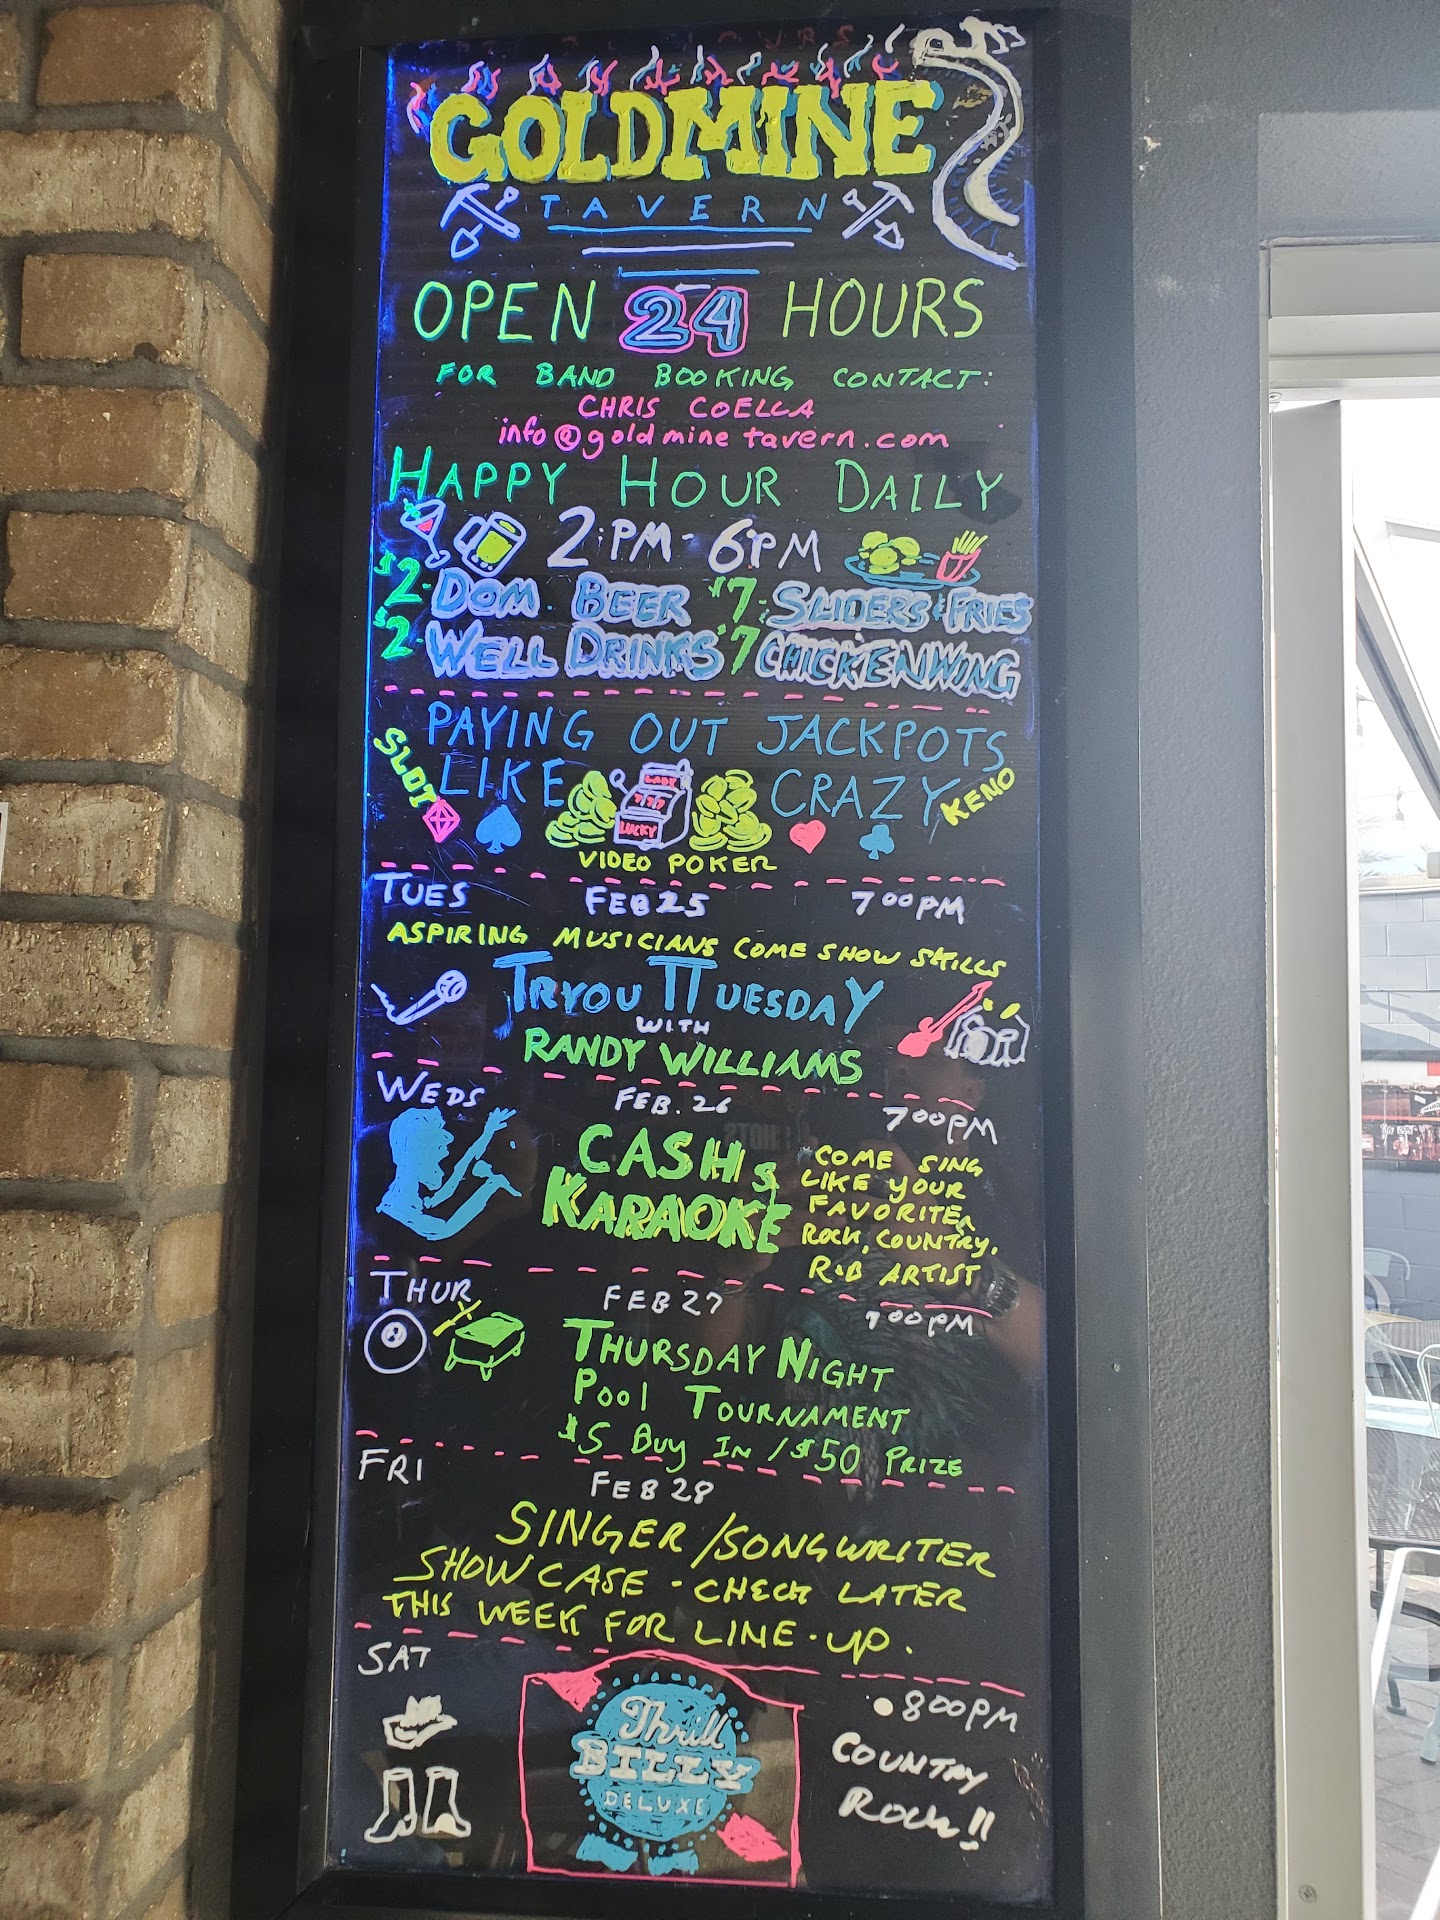 GOLDMINE
TAVERN
OPEN 24 HOURS
FOR BAND BOOKING CONTACT:
CHRIS COELLA
info@goldminetavern.com
HAPPY HOUR DAILY
2:PM-6PM
$2-DOM. BEER $7-SLIDERS & FRIES
$2-WELL DRINKS $7 CHICKEN WING
PAYING OUT JACKPOTS
LIKE CRAZY
SLOT
KENO
LADY
777
LUCKY
VIDEO POKER
TUES FEB 25 700PM
ASPIRING MUSICIANS COME SHOW SKILLS
TRYOUTTUESDAY
WITH
RANDY WILLIAMS
WEDS FEB. 26 700PM
CASH
KARAOKE
COME SING
LIKE YOUR
FAVORITE
ROCK, COUNTRY,
R&B ARTIST
THUR FEB 27 700PM
THURSDAY NIGHT
Pool TOURNAMENT
$5 Buy IN / $50 PRIZE
FRI FEB 28
SINGER/SONGWRITER
SHOWCASE - CHECK LATER
THIS WEEK FOR LINE-UP.
SAT
Thrill
BILLY
DELUXE
800PM
COUNTRY
ROCK!!